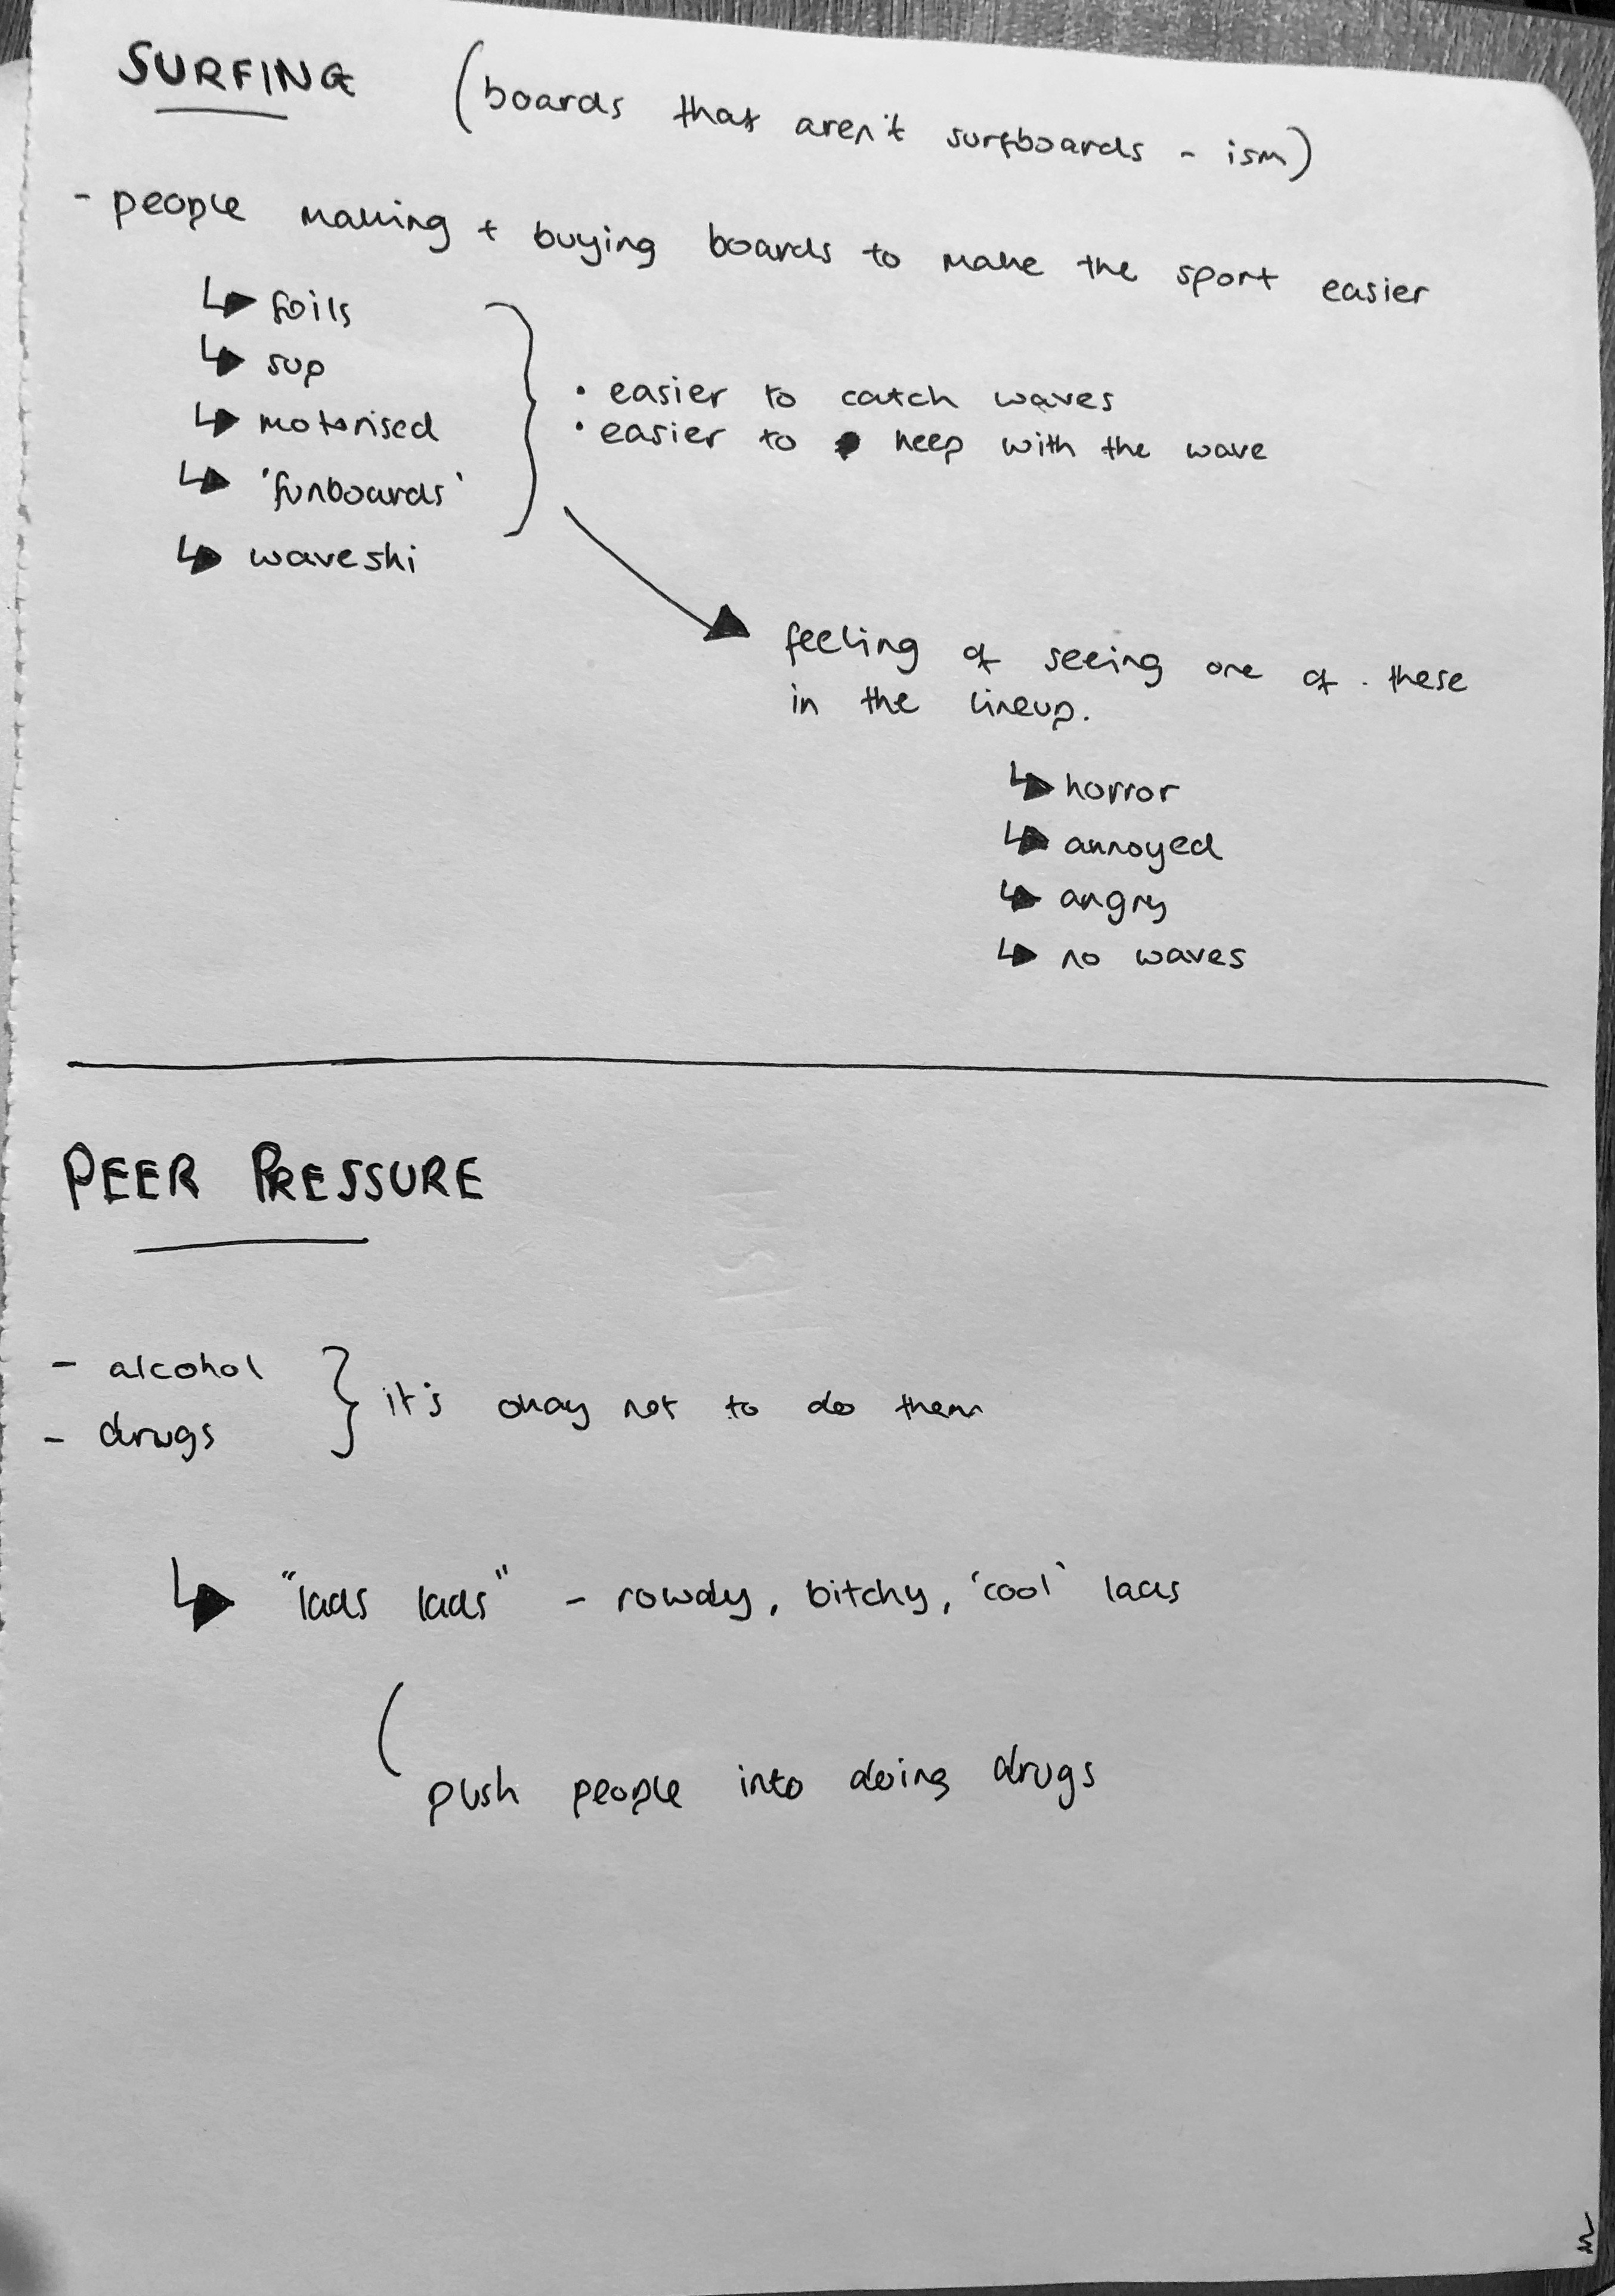 SURFING (boards that aren't surfboards - ism)
- people making + buying boards to make the sport easier
↳ foils
↳ sup
↳ motorised
↳ 'funboards'
↳ waveski
• easier to catch waves
• easier to keep with the wave
feeling of seeing one of these
in the lineup.
↳ horror
↳ annoyed
↳ angry
↳ no waves
PEER PRESSURE
- alcohol
- drugs
it's okay not to do them
↳ "lads lads" - rowdy, bitchy, 'cool' lads
( push people into doing drugs